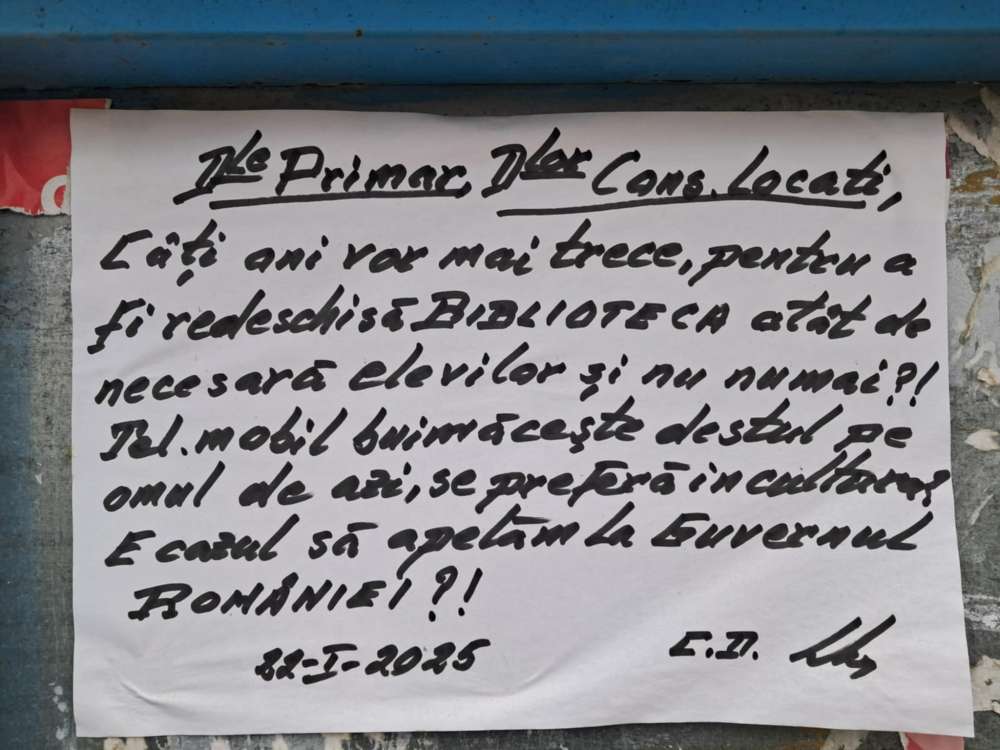 Dle Primar, Dlor Cons. Locali,
Câți ani vor mai trece, pentru a
fi redeschisă BIBLIOTECA atât de
necesară elevilor și nu numai?!
Tel. mobil buimăcește destul pe
omul de azi, se preferă incultura?
E cazul să apelăm la Guvernul
ROMÂNIEI?!
22-I-2025 E.D.